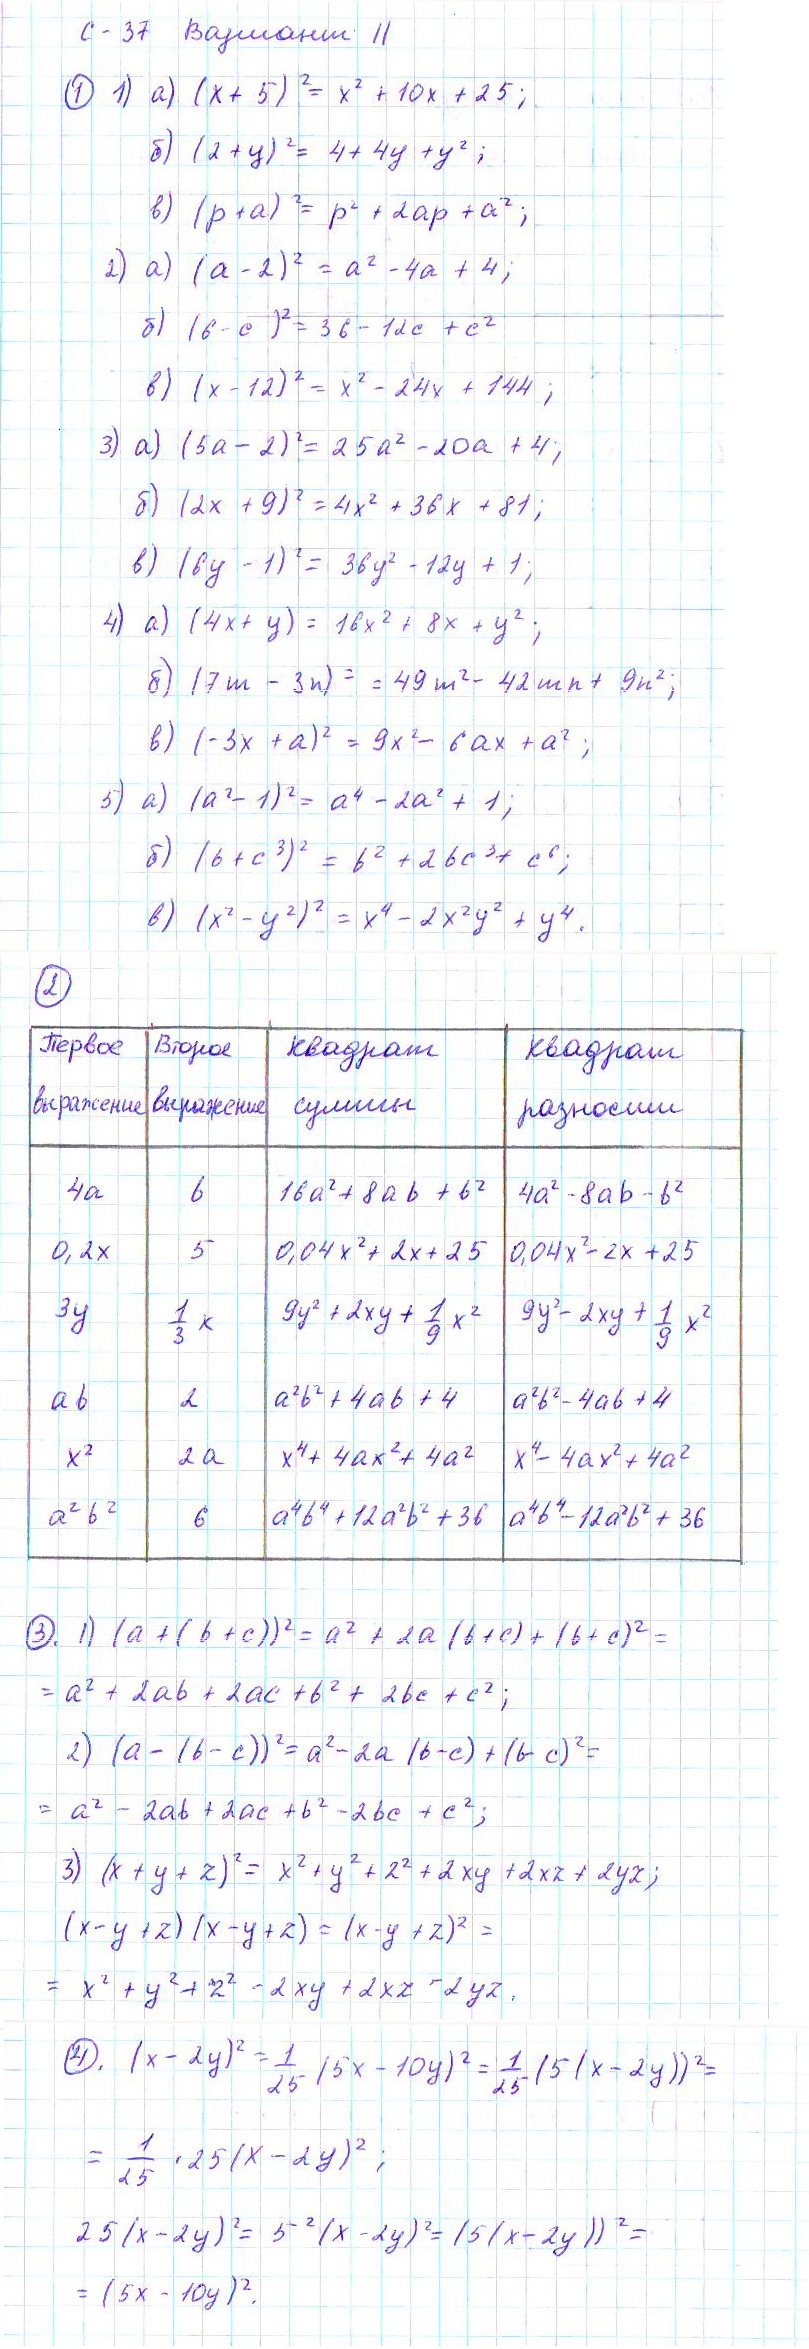 С-37 Вариант II
① 1) а) (x + 5)² = x² + 10x + 25;
б) (2 + y)² = 4 + 4y + y²;
в) (p + a)² = p² + 2ap + a²;
2) а) (a - 2)² = a² - 4a + 4;
б) (6 - c )² = 36 - 12c + c²
в) (x - 12)² = x² - 24x + 144;
3) а) (5a - 2)² = 25a² - 20a + 4;
б) (2x + 9)² = 4x² + 36x + 81;
в) (6y - 1)² = 36y² - 12y + 1;
4) а) (4x + y) = 16x² + 8x + y²;
б) (7m - 3n)² = 49m² - 42mn + 9n²;
в) (-3x + a)² = 9x² - 6ax + a²;
5) а) (a² - 1)² = a⁴ - 2a² + 1;
б) (b + c³)² = b² + 2bc³ + c⁶;
в) (x² - y²)² = x⁴ - 2x²y² + y⁴.
②
Первое выражение Второе выражение Квадрат суммы Квадрат разности
4a b 16a² + 8ab + b² 4a² - 8ab - b²
0,2x 5 0,04x² + 2x + 25 0,04x² - 2x + 25
3y 1/3 x 9y² + 2xy + 1/9 x² 9y² - 2xy + 1/9 x²
ab 2 a²b² + 4ab + 4 a²b² - 4ab + 4
x² 2a x⁴ + 4ax² + 4a² x⁴ - 4ax² + 4a²
a²b² 6 a⁴b⁴ + 12a²b² + 36 a⁴b⁴ - 12a²b² + 36
③. 1) (a + (b + c))² = a² + 2a (b + c) + (b + c)² =
= a² + 2ab + 2ac + b² + 2bc + c²;
2) (a - (b - c))² = a² - 2a (b - c) + (b - c)² =
= a² - 2ab + 2ac + b² - 2bc + c²;
3) (x + y + z)² = x² + y² + z² + 2xy + 2xz + 2yz;
(x - y + z) (x - y + z) = (x - y + z)² =
= x² + y² + z² - 2xy + 2xz - 2yz.
④. (x - 2y)² = 1/25 (5x - 10y)² = 1/25 (5 (x - 2y))² =
= 1/25 · 25 (x - 2y)²;
25 (x - 2y)² = 5² (x - 2y)² = (5 (x - 2y))² =
= (5x - 10y)².